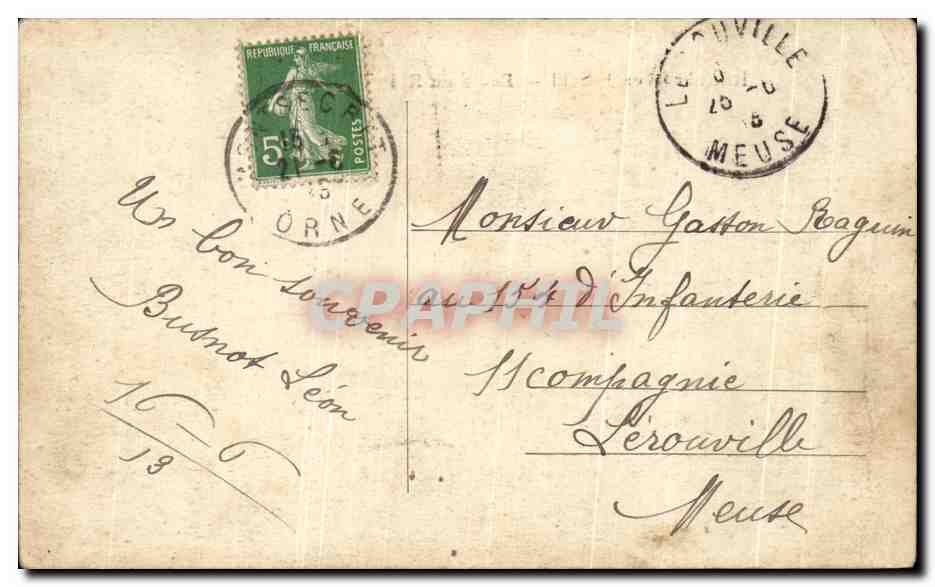 RÉPUBLIQUE FRANÇAISE
5
POSTES
ORNE
LEROUVILLE
MEUSE
Un bon souvenir
Busnot Léon
16-6
13
Monsieur Gasson Raguin
au 154 d'Infanterie
11 compagnie
Lérouville
Meuse
CPAPHIL